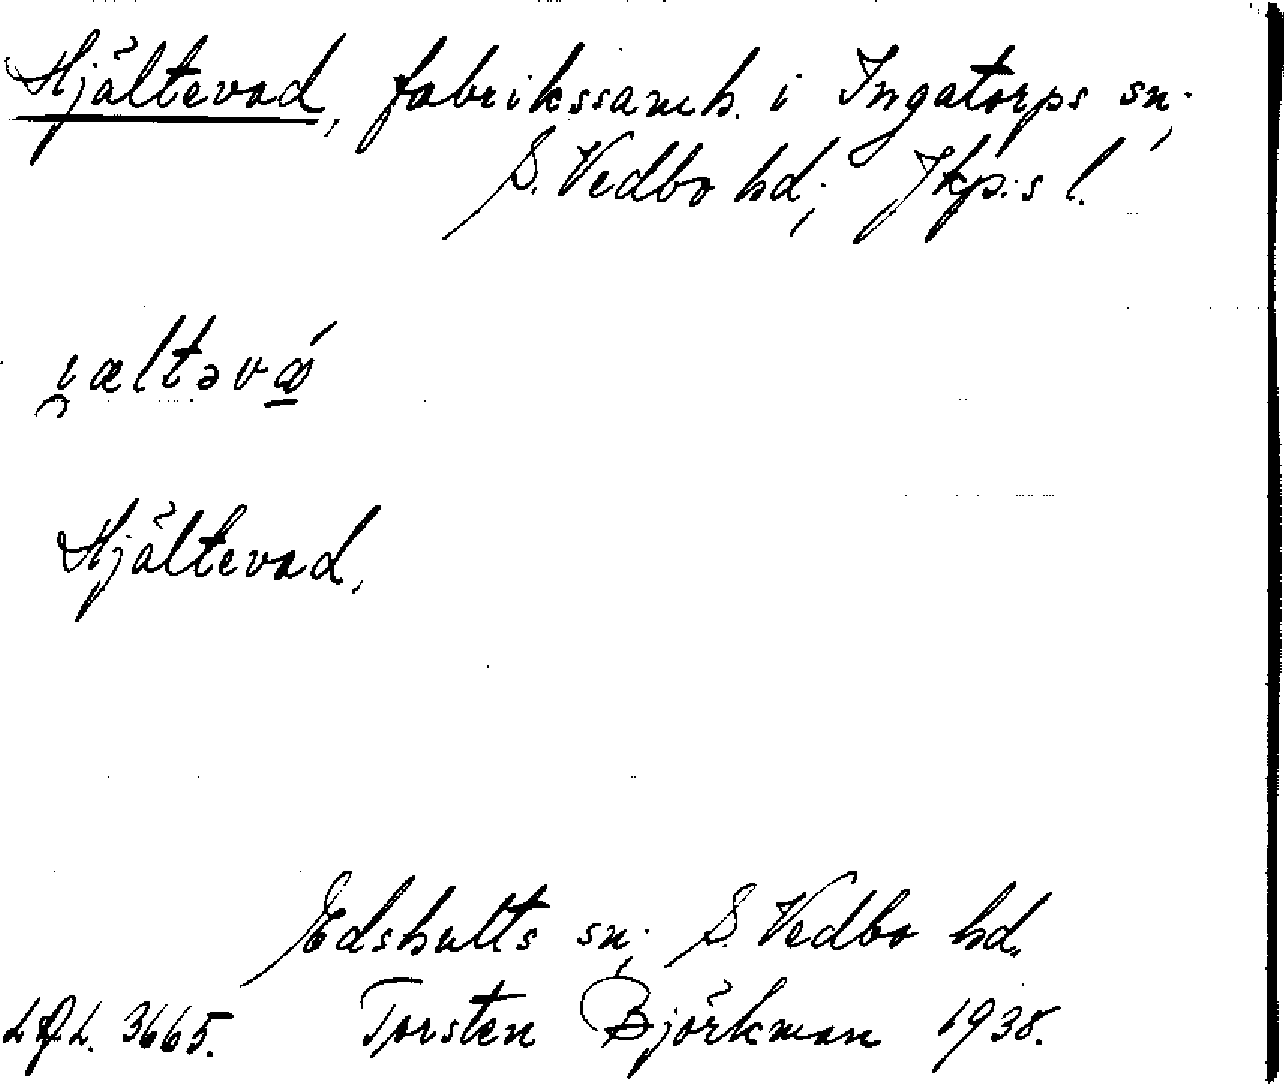 Hjältevad, fabrikssamh. i Ingatorps sn.,
S. Vedbo hd., Jkp:s l.
i̯æltəvǻ
Hjältevad.
Edshults sn., S. Vedbo hd.
3665. Torsten Björkman 1938.